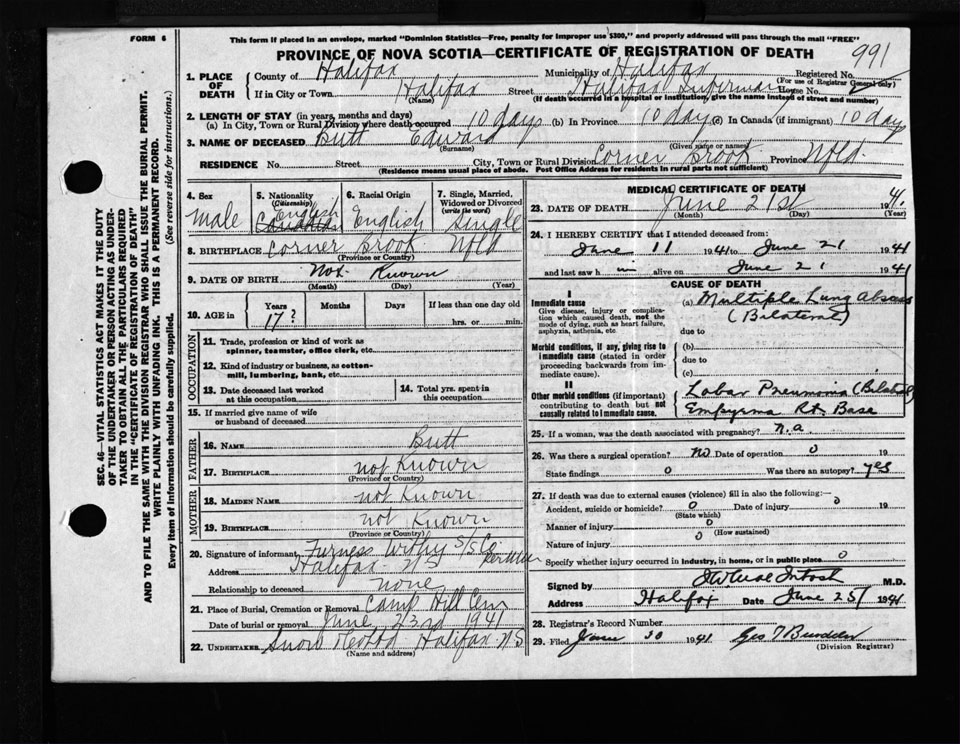 FORM 6
This form if placed in an envelope, marked "Dominion Statistics—Free, penalty for improper use $300," and properly addressed will pass through the mail "FREE"
PROVINCE OF NOVA SCOTIA—CERTIFICATE OF REGISTRATION OF DEATH
991
1. PLACE OF DEATH
County of Halifax Municipality of Halifax Registered No.
(For use of Registrar General only)
If in City or Town Halifax Street Halifax Infirmary House No.
(Name) (If death occurred in a hospital or institution, give the name instead of street and number)
2. LENGTH OF STAY (in years, months and days)
(a) In City, Town or Rural Division where death occurred 10 days (b) In Province 10 days (c) In Canada (if immigrant) 10 days
3. NAME OF DECEASED Butt Edward
(Surname) (Given name or names)
RESIDENCE No. Street City, Town or Rural Division Corner Brook Province Nfld.
(Residence means usual place of abode. Post Office Address for residents in rural parts not sufficient)
4. Sex Male
5. Nationality (Citizenship) English Canadian
6. Racial Origin English
7. Single, Married, Widowed or Divorced (write the word) Single
8. BIRTHPLACE Corner Brook Nfld
(Province or Country)
9. DATE OF BIRTH Not Known
(Month) (Day) (Year)
10. AGE in Years 17? Months Days If less than one day old hrs. or min.
OCCUPATION
11. Trade, profession or kind of work as spinner, teamster, office clerk, etc.
12. Kind of industry or business, as cotton-mill, lumbering, bank, etc.
13. Date deceased last worked at this occupation
14. Total yrs. spent in this occupation
15. If married give name of wife or husband of deceased
FATHER
16. NAME Butt
17. BIRTHPLACE not Known
(Province or Country)
MOTHER
18. MAIDEN NAME not Known
19. BIRTHPLACE not Known
(Province or Country)
20. Signature of informant Furness Withy S/S Co.
Address Halifax N S
Relationship to deceased none
21. Place of Burial, Cremation or Removal Camp Hill Cem
Date of burial or removal June 23rd 1941
22. UNDERTAKER Snow Halifax N S
(Name and address)
MEDICAL CERTIFICATE OF DEATH
23. DATE OF DEATH June 21st 1941
(Month) (Day) (Year)
24. I HEREBY CERTIFY that I attended deceased from:
June 11 1941 to June 21 1941
and last saw h im alive on June 21 1941
CAUSE OF DEATH
I
Immediate cause
Give disease, injury or complication which caused death, not the mode of dying, such as heart failure, asphyxia, asthenia, etc.
(a) Multiple Lung Abscess
(Bilateral)
due to
Morbid conditions, if any, giving rise to immediate cause (stated in order proceeding backwards from immediate cause).
(b)
due to
(c)
II
Other morbid conditions (if important) contributing to death but not causally related to immediate cause.
Lobar Pneumonia (Bilateral)
Empyema Rt. Base
25. If a woman, was the death associated with pregnancy? n.a.
26. Was there a surgical operation? No Date of operation 0 19
State findings 0 Was there an autopsy? yes
27. If death was due to external causes (violence) fill in also the following:—
Accident, suicide or homicide? 0 Date of injury 0 19
(State which)
Manner of injury 0
(How sustained)
Nature of injury 0
Specify whether injury occurred in industry, in home, or in public place 0
Signed by M.D.
Address Halifax Date June 25/ 1941
28. Registrar's Record Number
29. Filed June 30 1941
(Division Registrar)
SEC. 46—VITAL STATISTICS ACT MAKES IT THE DUTY OF THE UNDERTAKER OR PERSON ACTING AS UNDERTAKER TO OBTAIN ALL THE PARTICULARS REQUIRED IN THE "CERTIFICATE OF REGISTRATION OF DEATH" AND TO FILE THE SAME WITH THE DIVISION REGISTRAR WHO SHALL ISSUE THE BURIAL PERMIT.
WRITE PLAINLY WITH UNFADING INK. THIS IS A PERMANENT RECORD.
Every item of Information should be carefully supplied. (See reverse side for instructions.)